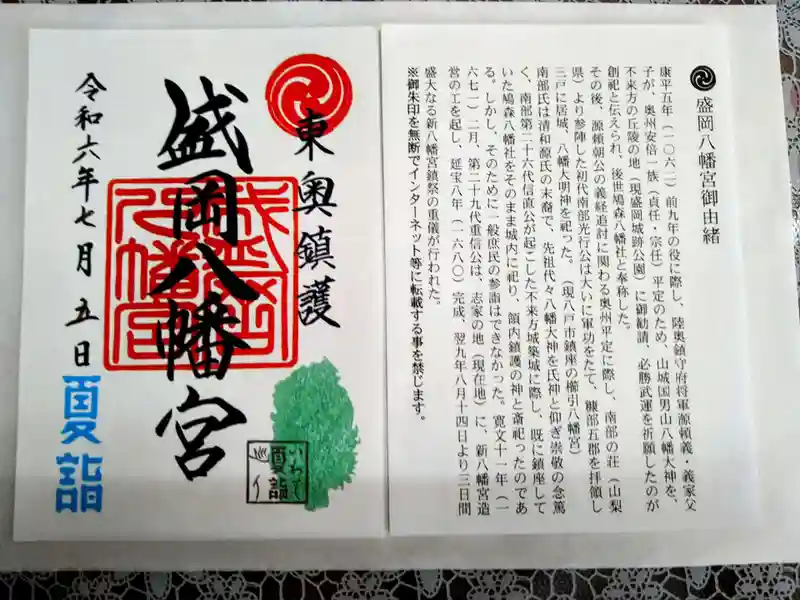 盛岡八幡宮御由緒
康平五年(一〇六二)前九年の役に際し、陸奥鎮守府将軍源頼義、義家父
子が、奥州安倍一族(貞任・宗任)平定のため、山城国男山八幡大神を、
不来方の丘陵の地(現盛岡城跡公園)に御勧請、必勝武運を祈願したのが
創祀と伝えられ、後世鳩森八幡社と奉称した。
その後、源頼朝公の義経追討に関わる奥州平定に際し、南部の荘(山梨
県)より参陣した初代南部光行公は大いに軍功をたて、糠部五郡を拝領し
三戸に居城、八幡大明神を祀った。(現八戸市鎮座の櫛引八幡宮)
南部氏は清和源氏の末裔で、先祖代々八幡大神を氏神と仰ぎ崇敬の念篤
く、南部第二十六代信直公が起こした不来方城築城に際し、既に鎮座して
いた鳩森八幡社をそのまま城内に祀り、領内鎮護の神と斎祀ったのであ
る。しかし、そのために一般庶民の参詣はできなかった。寛文十一年(一
六七一)二月、第二十九代重信公は、志家の地(現在地)に、新八幡宮造
営の工を起し、延宝八年(一六八〇)完成、翌九年八月十四日より三日間
盛大なる新八幡宮鎮祭の重儀が行われた。
※御朱印を無断でインターネット等に転載する事を禁じます。
東奥鎮護
盛岡八幡宮
盛岡八幡宮
令和六年七月五日
夏詣
いわて
夏詣